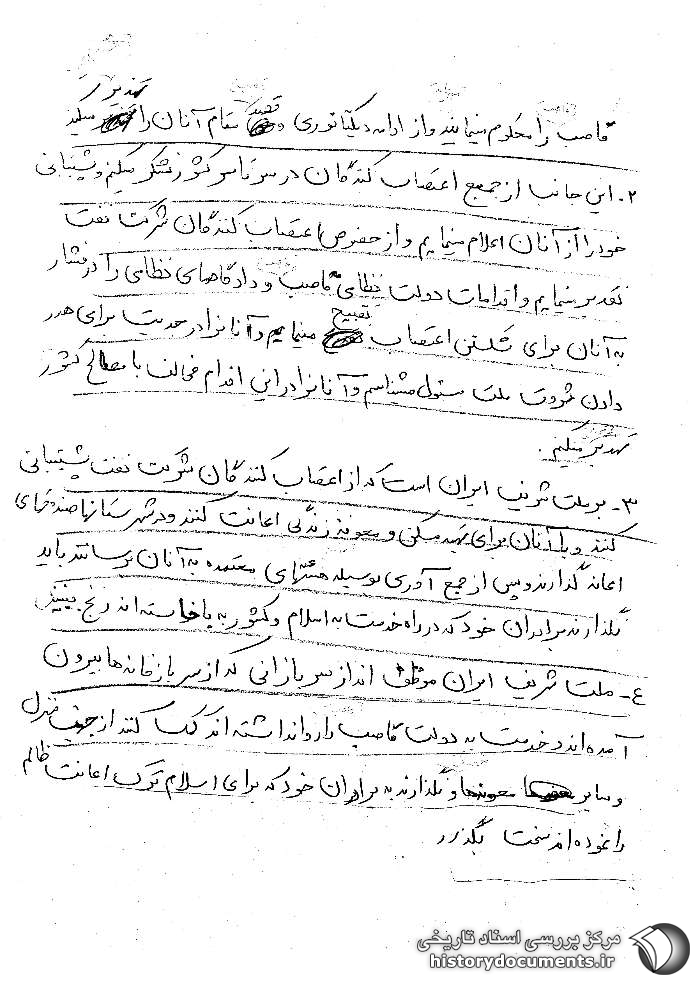 تهدید
غاصب را محکوم مینمایند و از ادامه دیکتاتوری و قصد مقام آنان را میکنند
۲ـ این جانب از جمیع اعتصاب کنندگان در سرتاسر کشور تشکر میکنم و پشتیبانی
خود را از آنان اعلام مینمایم و از خصوص اعتصاب کنندگان شرکت نفت
تقدیر مینمایم و اقدامات دولت نظامی غاصب و دادگاههای نظامی را در فشار
به آنان برای شکستن اعتصاب تقبیح مینمایم و آنانرا در جدیت برای هدر
دادن ثروت ملت مسئول میشناسم و آنانرا در این اقدام مخالف با مصالح کشور
تهدید میکنم.
۳ـ بر ملت شریف ایران است که از اعتصاب کنندگان شرکت نفت پشتیبانی
کنند و با آنان برای تهیه مسکن و معونه زندگی اعانت کنند و در شهرستانها صندوقهای
اعانه گذارند و پس از جمع آوری بوسیله هیئتهای معتمده به آنان برسانند باید
نگذارند برادران خود که در راه خدمت به اسلام و کشور به پا خاسته اند رنج ببینند
۴ـ ملت شریف ایران موظف اند از سربازانی که از سربازخانه ها بیرون
آمده اند و خدمت به دولت غاصب را روا نداشته اند کمک کنند از جهت منزل
و سایر معونه ها و نگذارند به برادران خود که برای اسلام ترک اعانت ظالم
را نموده اند سخت بگذرد
مرکز بررسی اسناد تاریخی
historydocuments.ir